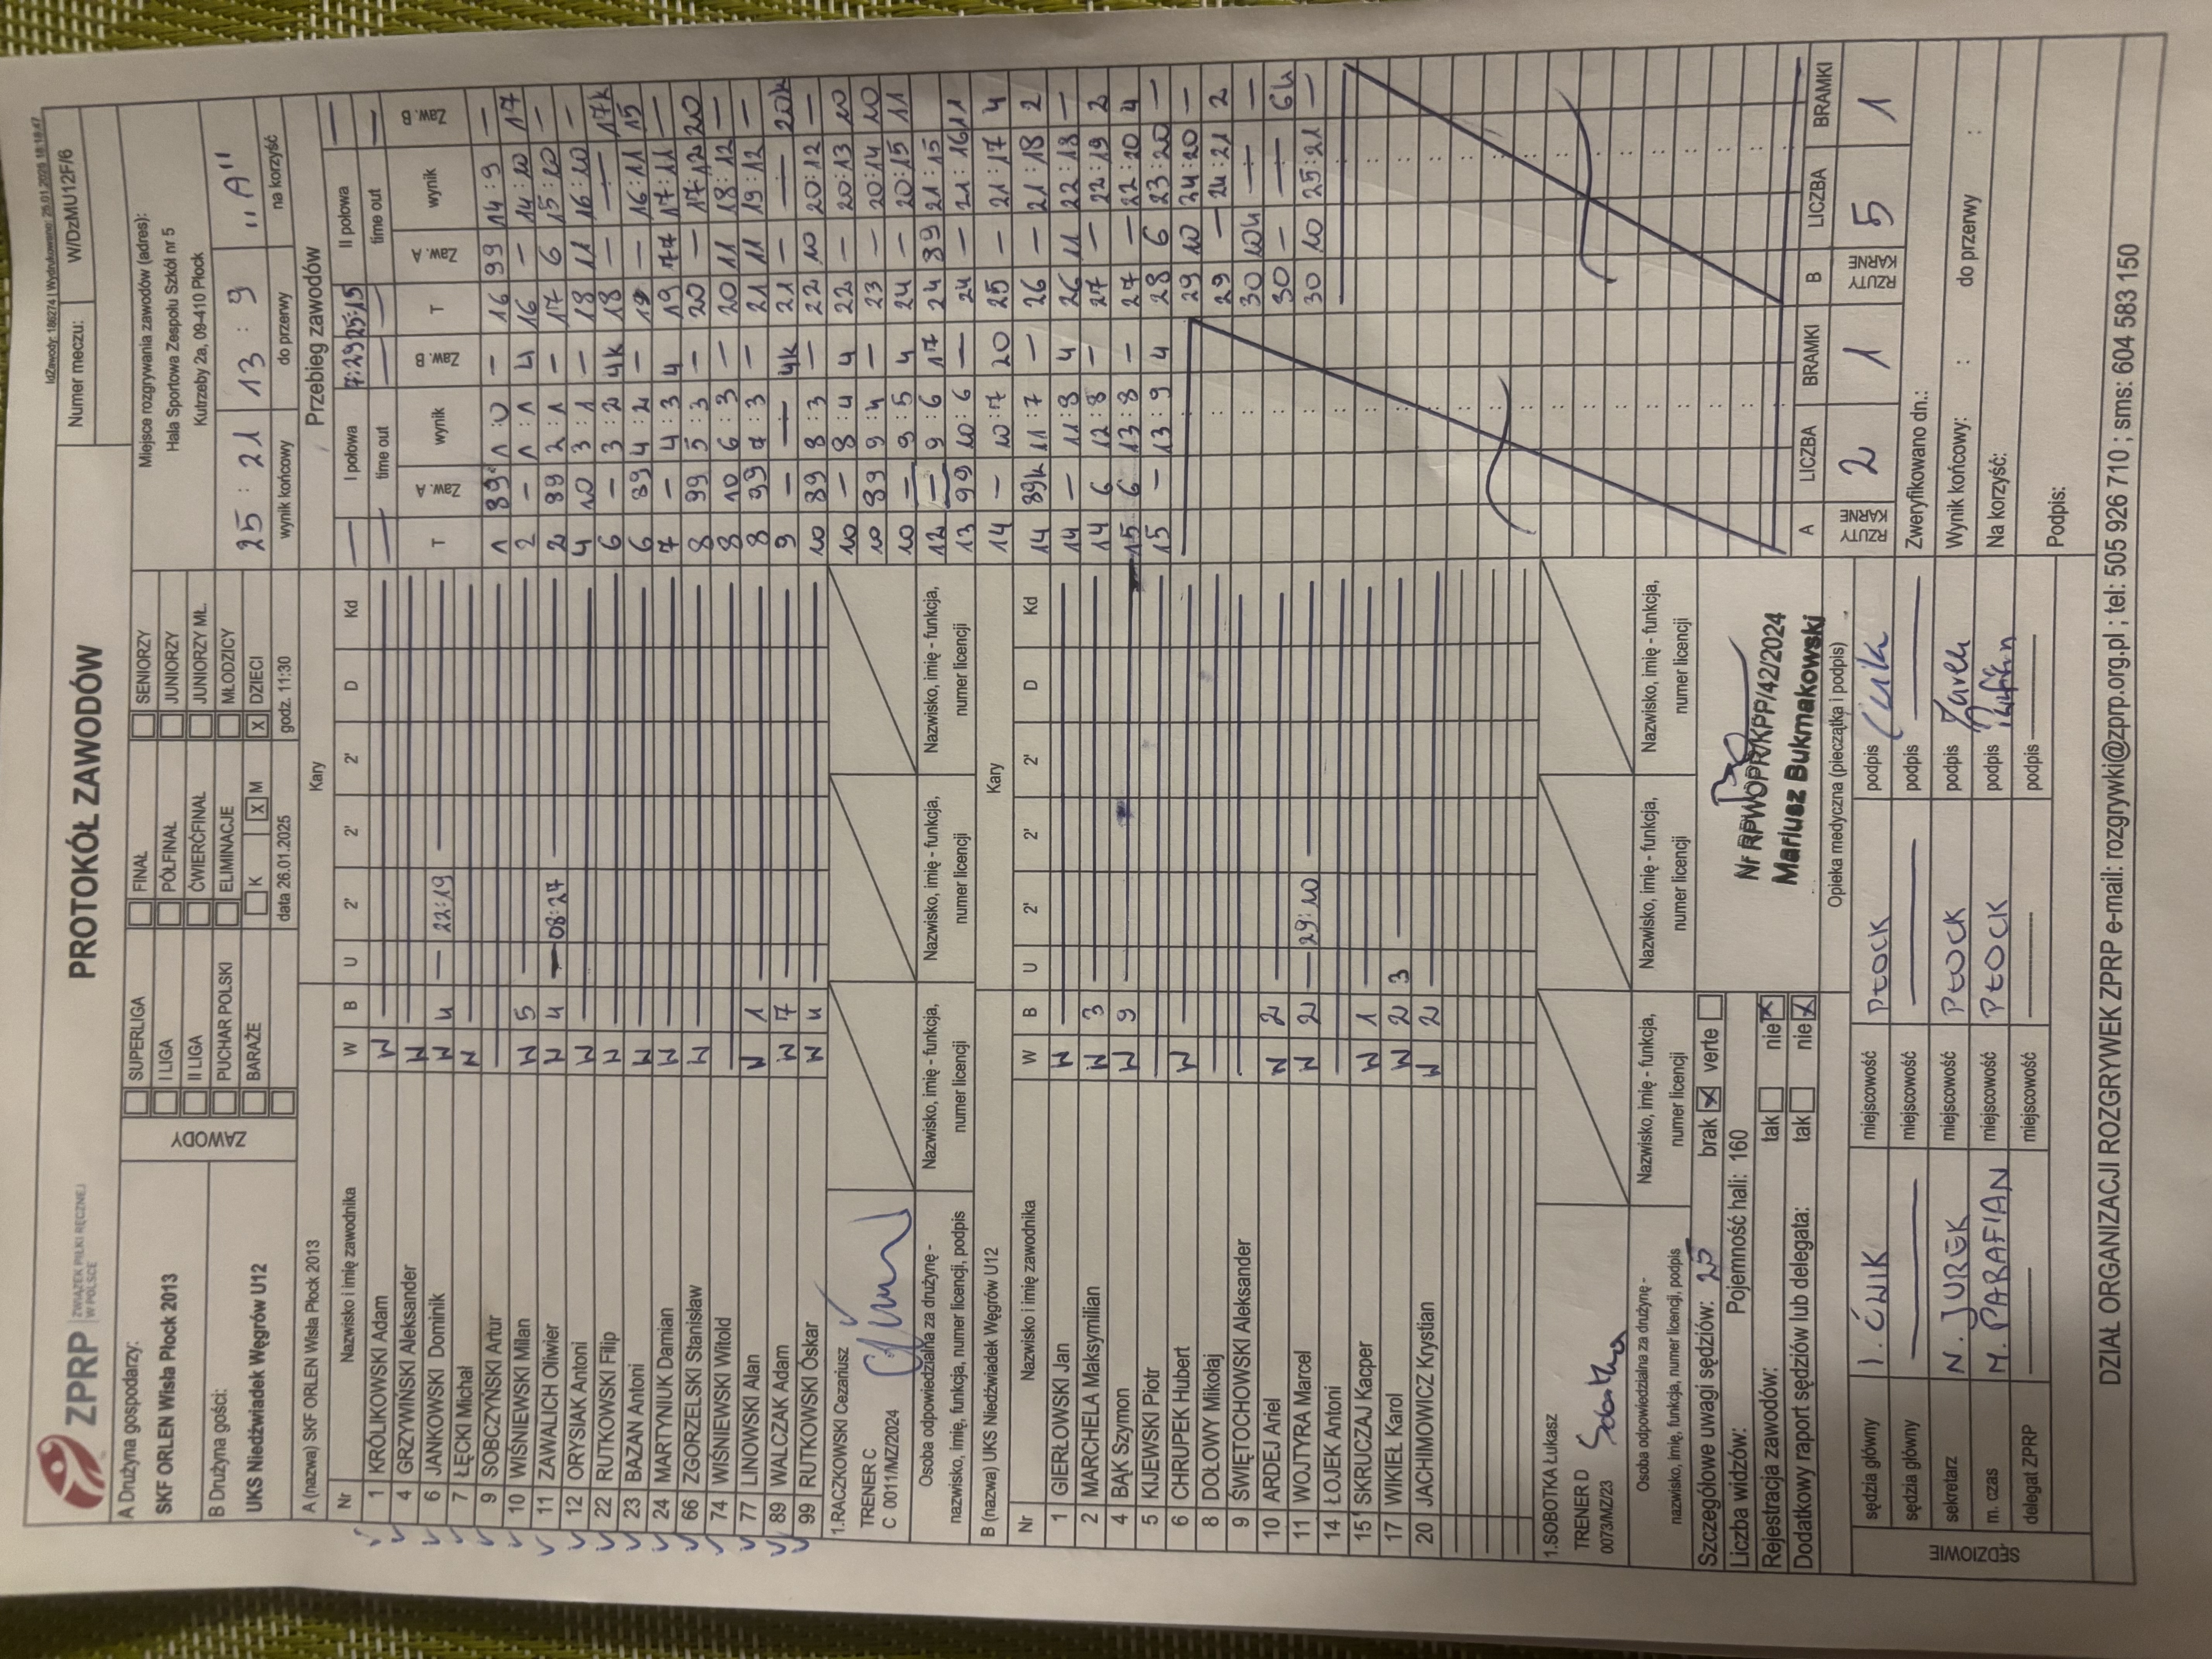 IdZawody: 186274 | Wydrukowano: 26.01.2026 18:18:47
ZPRP ZWIĄZEK PIŁKI RĘCZNEJ W POLSCE
PROTOKÓŁ ZAWODÓW
Numer meczu: W/DzMU12F/6
A Drużyna gospodarzy:
SKF ORLEN Wisła Płock 2013
B Drużyna gości:
UKS Niedźwiadek Węgrów U12
ZAWODY
SUPERLIGA FINAŁ SENIORZY
I LIGA PÓŁFINAŁ JUNIORZY
II LIGA ĆWIERĆFINAŁ JUNIORZY MŁ.
PUCHAR POLSKI ELIMINACJE MŁODZICY
BARAŻE K X M X DZIECI
data 26.01.2025 godz. 11:30
Miejsce rozgrywania zawodów (adres):
Hala Sportowa Zespołu Szkół nr 5
Kutrzeby 2a, 09-410 Płock
25 : 21 13 : 9 "A"
wynik końcowy do przerwy na korzyść
A (nazwa) SKF ORLEN Wisła Płock 2013 Kary
Nr Nazwisko i imię zawodnika W B U 2' 2' 2' D Kd
1 KRÓLIKOWSKI Adam W
4 GRZYWIŃSKI Aleksander W
6 JANKOWSKI Dominik W 4 — 22:19
7 ŁĘCKI Michał W
9 SOBCZYŃSKI Artur
10 WIŚNIEWSKI Milan W 5
11 ZAWALICH Oliwier W 4 — 08:27
12 ORYSIAK Antoni W
22 RUTKOWSKI Filip W
23 BAZAN Antoni W
24 MARTYNIUK Damian W
66 ZGORZELSKI Stanisław W
74 WIŚNIEWSKI Witold
77 LINOWSKI Alan W 1
89 WALCZAK Adam W 7
99 RUTKOWSKI Oskar W 4
1.RACZKOWSKI Cezariusz
TRENER C
C 0011/MZ/2024
Osoba odpowiedzialna za drużynę -
nazwisko, imię, funkcja, numer licencji, podpis
Nazwisko, imię - funkcja,
numer licencji
Nazwisko, imię - funkcja,
numer licencji
Nazwisko, imię - funkcja,
numer licencji
B (nazwa) UKS Niedźwiadek Węgrów U12 Kary
Nr Nazwisko i imię zawodnika W B U 2' 2' 2' D Kd
1 GIERŁOWSKI Jan W
2 MARCHELA Maksymilian W 3
4 BĄK Szymon W 9
5 KIJEWSKI Piotr
6 CHRUPEK Hubert W
8 DOŁOWY Mikołaj
9 ŚWIĘTOCHOWSKI Aleksander
10 ARDEJ Ariel W 2
11 WOJTYRA Marcel W 2 — 29:10
14 ŁOJEK Antoni
15 SKRUCZAJ Kacper W 1
17 WIKIEŁ Karol W 2 3
20 JACHIMOWICZ Krystian W 2
1.SOBOTKA Łukasz
TRENER D
0073/MZ/23
Sobotka
Osoba odpowiedzialna za drużynę -
nazwisko, imię, funkcja, numer licencji, podpis
Nazwisko, imię - funkcja,
numer licencji
Nazwisko, imię - funkcja,
numer licencji
Nazwisko, imię - funkcja,
numer licencji
Przebieg zawodów
I połowa 7:29 25:15 II połowa
time out time out
T Zaw. A wynik Zaw. B T Zaw. A wynik Zaw. B
1 89 1 : 0 — 16 99 14 : 9 —
2 — 1 : 1 4 16 — 14 : 10 17
2 99 2 : 1 — 17 6 15 : 10 —
4 10 3 : 1 — 18 11 16 : 10 —
6 — 3 : 2 4k 18 — — 17k
6 89 4 : 2 — 19 — 16 : 11 15
7 — 4 : 3 4 19 77 17 : 11 —
8 99 5 : 3 — 20 — 17 : 12 20
8 10 6 : 3 — 20 11 18 : 12 —
8 99 7 : 3 — 21 11 19 : 12 —
9 — — 4k 21 — — 20k
10 89 8 : 3 — 22 10 20 : 12 —
10 — 8 : 4 4 22 — 20 : 13 10
10 89 9 : 4 — 23 — 20 : 14 10
10 — 9 : 5 4 24 — 20 : 15 11
12 — 9 : 6 17 24 89 21 : 15
13 99 10 : 6 — 24 — 21 : 16 11
14 — 10 : 7 20 25 — 21 : 17 4
14 89k 11 : 7 — 26 — 21 : 18 2
14 — 11 : 8 4 26 11 22 : 18 —
14 6 12 : 8 — 27 — 22 : 19 2
15 6 13 : 8 — 27 — 22 : 20 4
15 — 13 : 9 4 28 6 23 : 20 —
29 10 24 : 20 —
29 — 24 : 21 2
30 10k — —
30 — —
30 10 25 : 21 —
A LICZBA BRAMKI B LICZBA BRAMKI
RZUTY KARNE 2 1 RZUTY KARNE 5 1
Szczegółowe uwagi sędziów: brak X verte
Liczba widzów: 25 Pojemność hali: 160
Rejestracja zawodów: tak nie X
Dodatkowy raport sędziów lub delegata: tak nie X
Nr RPWOPR/KPP/42/2024
Mariusz Bukmakowski
Opieka medyczna (pieczątka i podpis)
SĘDZIOWIE
sędzia główny I. ĆWIK miejscowość PŁOCK podpis Ćwik
sędzia główny miejscowość podpis
sekretarz N. JUREK miejscowość PŁOCK podpis
m. czas M. PARAFIAN miejscowość PŁOCK podpis
delegat ZPRP miejscowość podpis
Zweryfikowano dn.:
Wynik końcowy: : do przerwy :
Na korzyść:
Podpis:
DZIAŁ ORGANIZACJI ROZGRYWEK ZPRP e-mail: rozgrywki@zprp.org.pl ; tel: 505 926 710 ; sms: 604 583 150